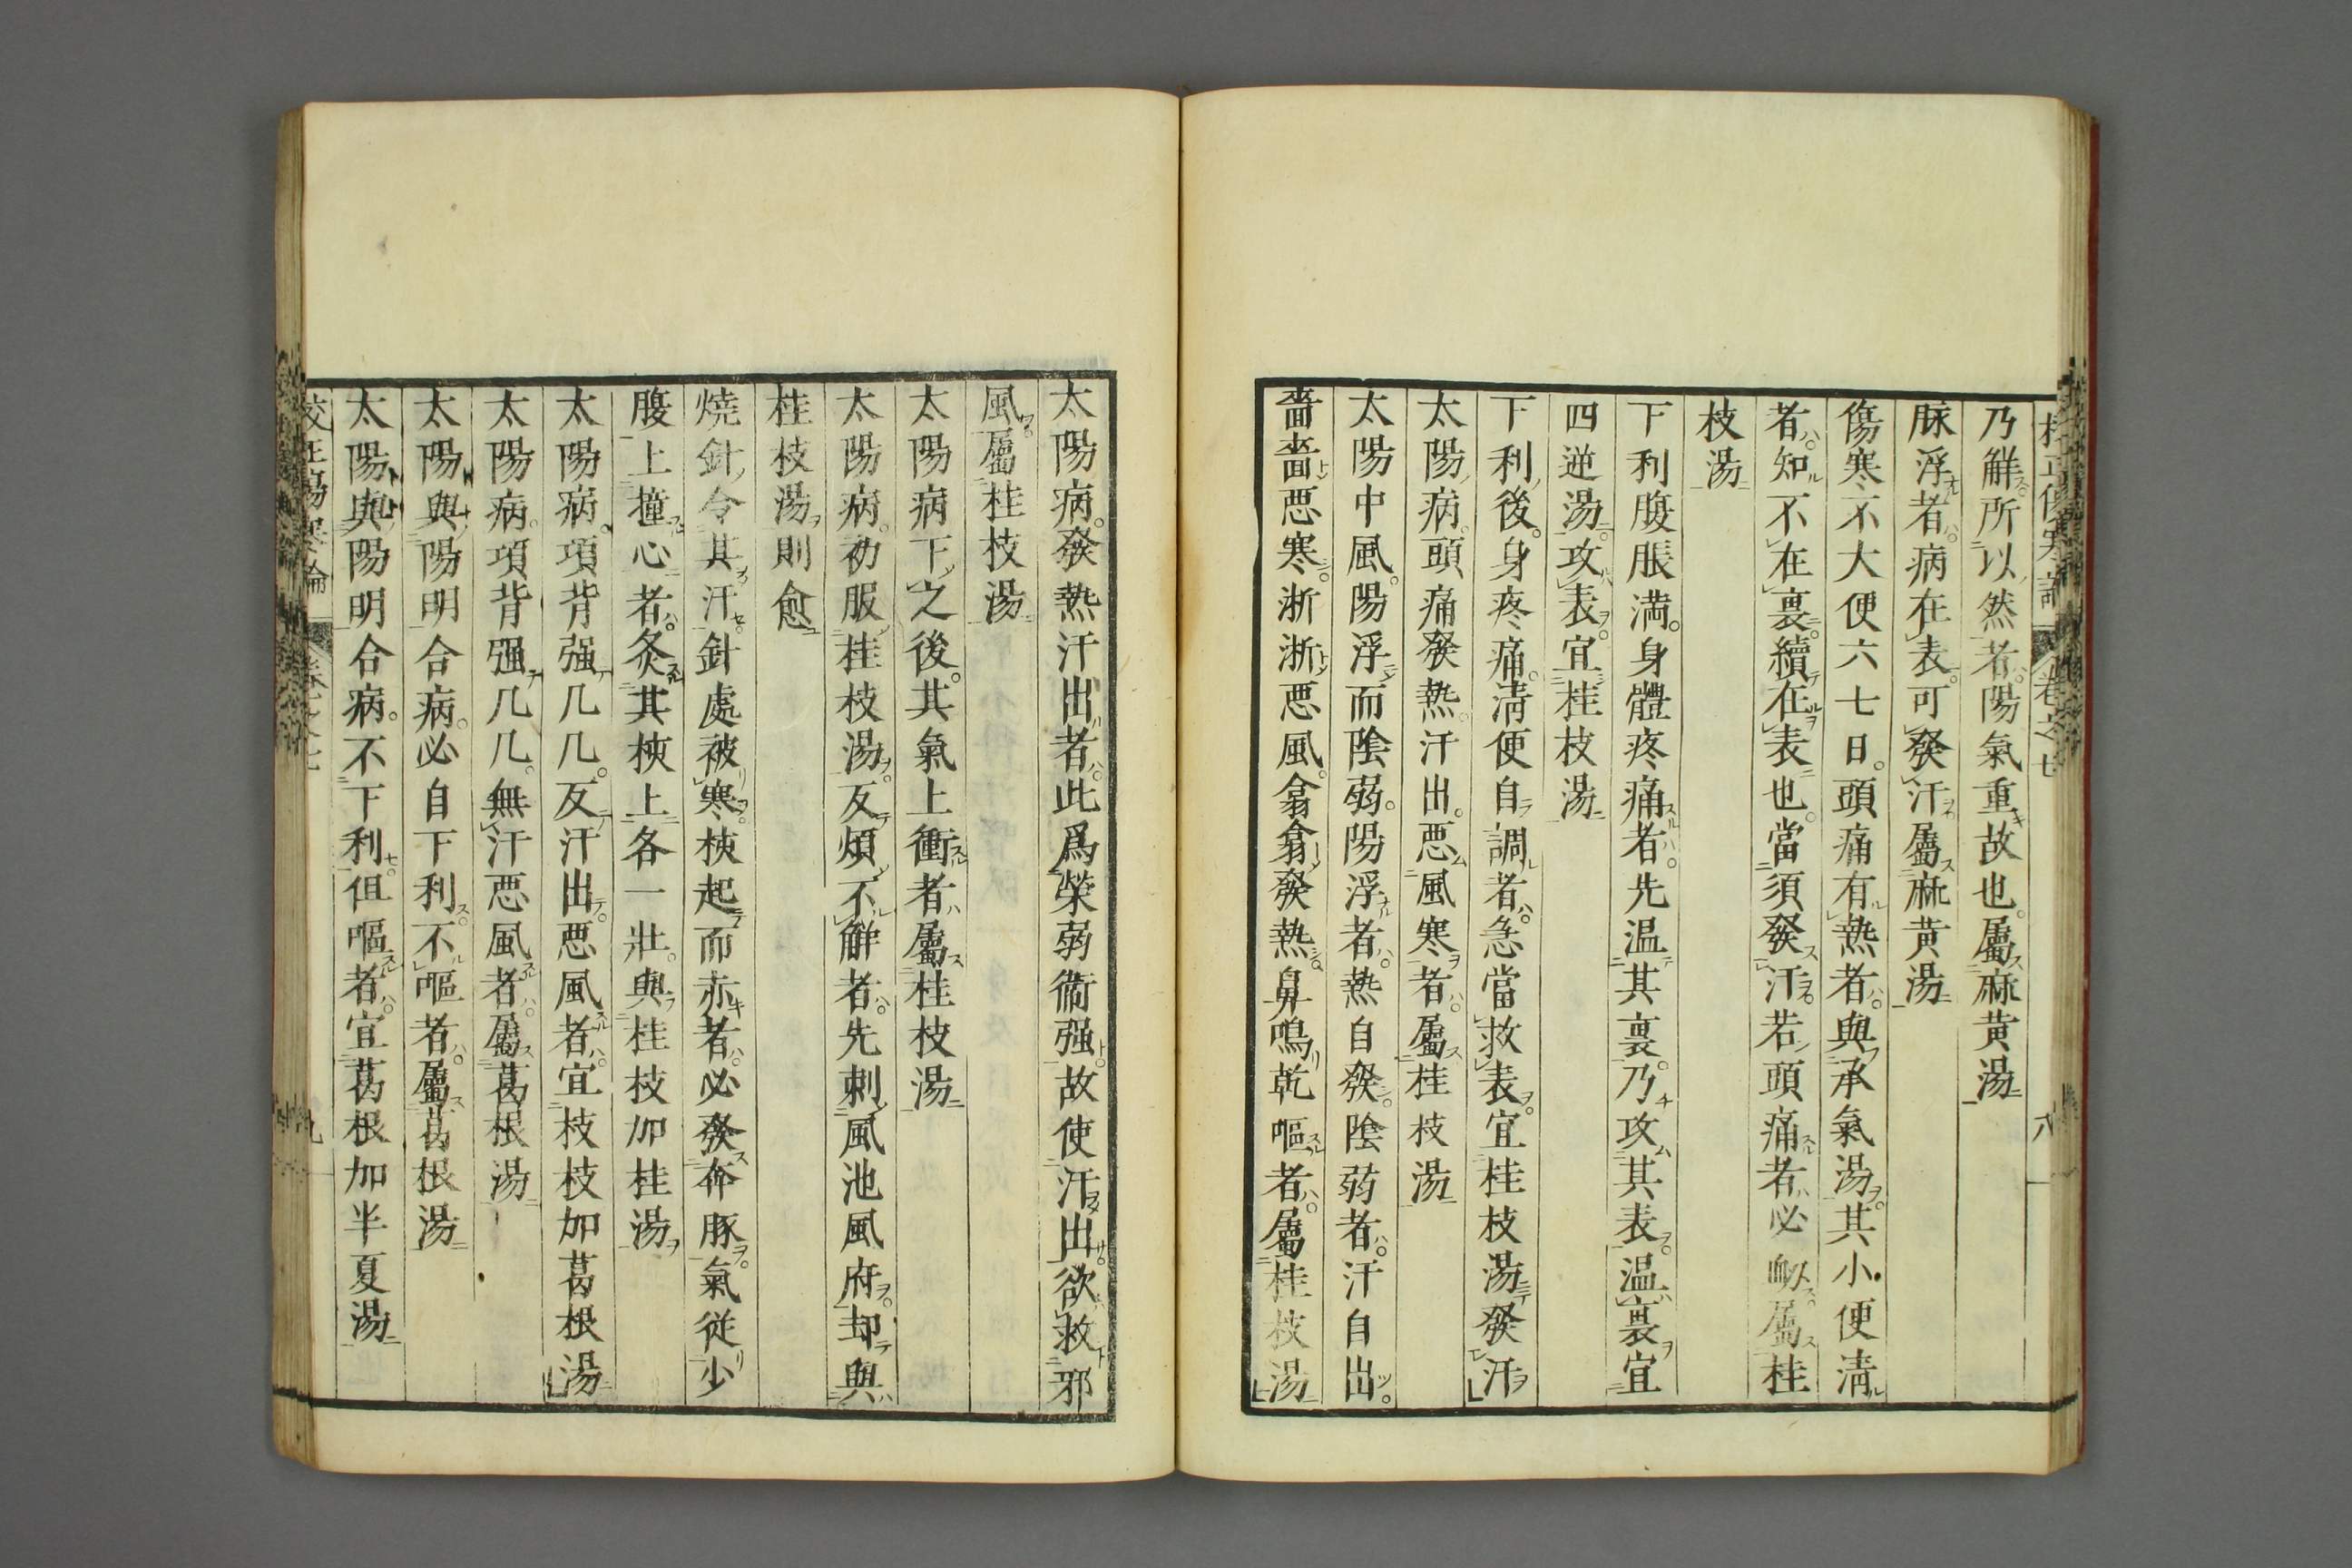 校正傷寒論 卷之七 八
乃解所以然者陽氣重故也屬麻黃湯
脉浮者病在表可發汗屬麻黃湯
傷寒不大便六七日頭痛有熱者與承氣湯其小便淸
者知不在裏續在表也當須發汗若頭痛者必衂屬桂
枝湯
下利腹脹満身體疼痛者先温其裏乃攻其表温裏宜
四逆湯攻表宜桂枝湯
下利後身疼痛淸便自調者急當救表宜桂枝湯發汗
太陽病頭痛發熱汗出惡風寒者屬桂枝湯
太陽中風陽浮而陰弱陽浮者熱自發陰弱者汗自出
嗇嗇惡寒淅淅惡風翕翕發熱鼻鳴乾嘔者屬桂枝湯
太陽病發熱汗出者此爲榮弱衞强故使汗出欲救邪
風屬桂枝湯
太陽病下之後其氣上衝者屬桂枝湯
太陽病初服桂枝湯反煩不解者先刺風池風府却與
桂枝湯則愈
燒針令其汗針處被寒核起而赤者必發奔豚氣從少
腹上撞心者灸其核上各一壯與桂枝加桂湯
太陽病項背强几几反汗出惡風者宜枝枝加葛根湯
太陽病項背强几几無汗惡風者屬葛根湯
太陽與陽明合病必自下利不嘔者屬葛根湯
太陽與陽明合病不下利但嘔者宜葛根加半夏湯
校正傷寒論 卷之七 九